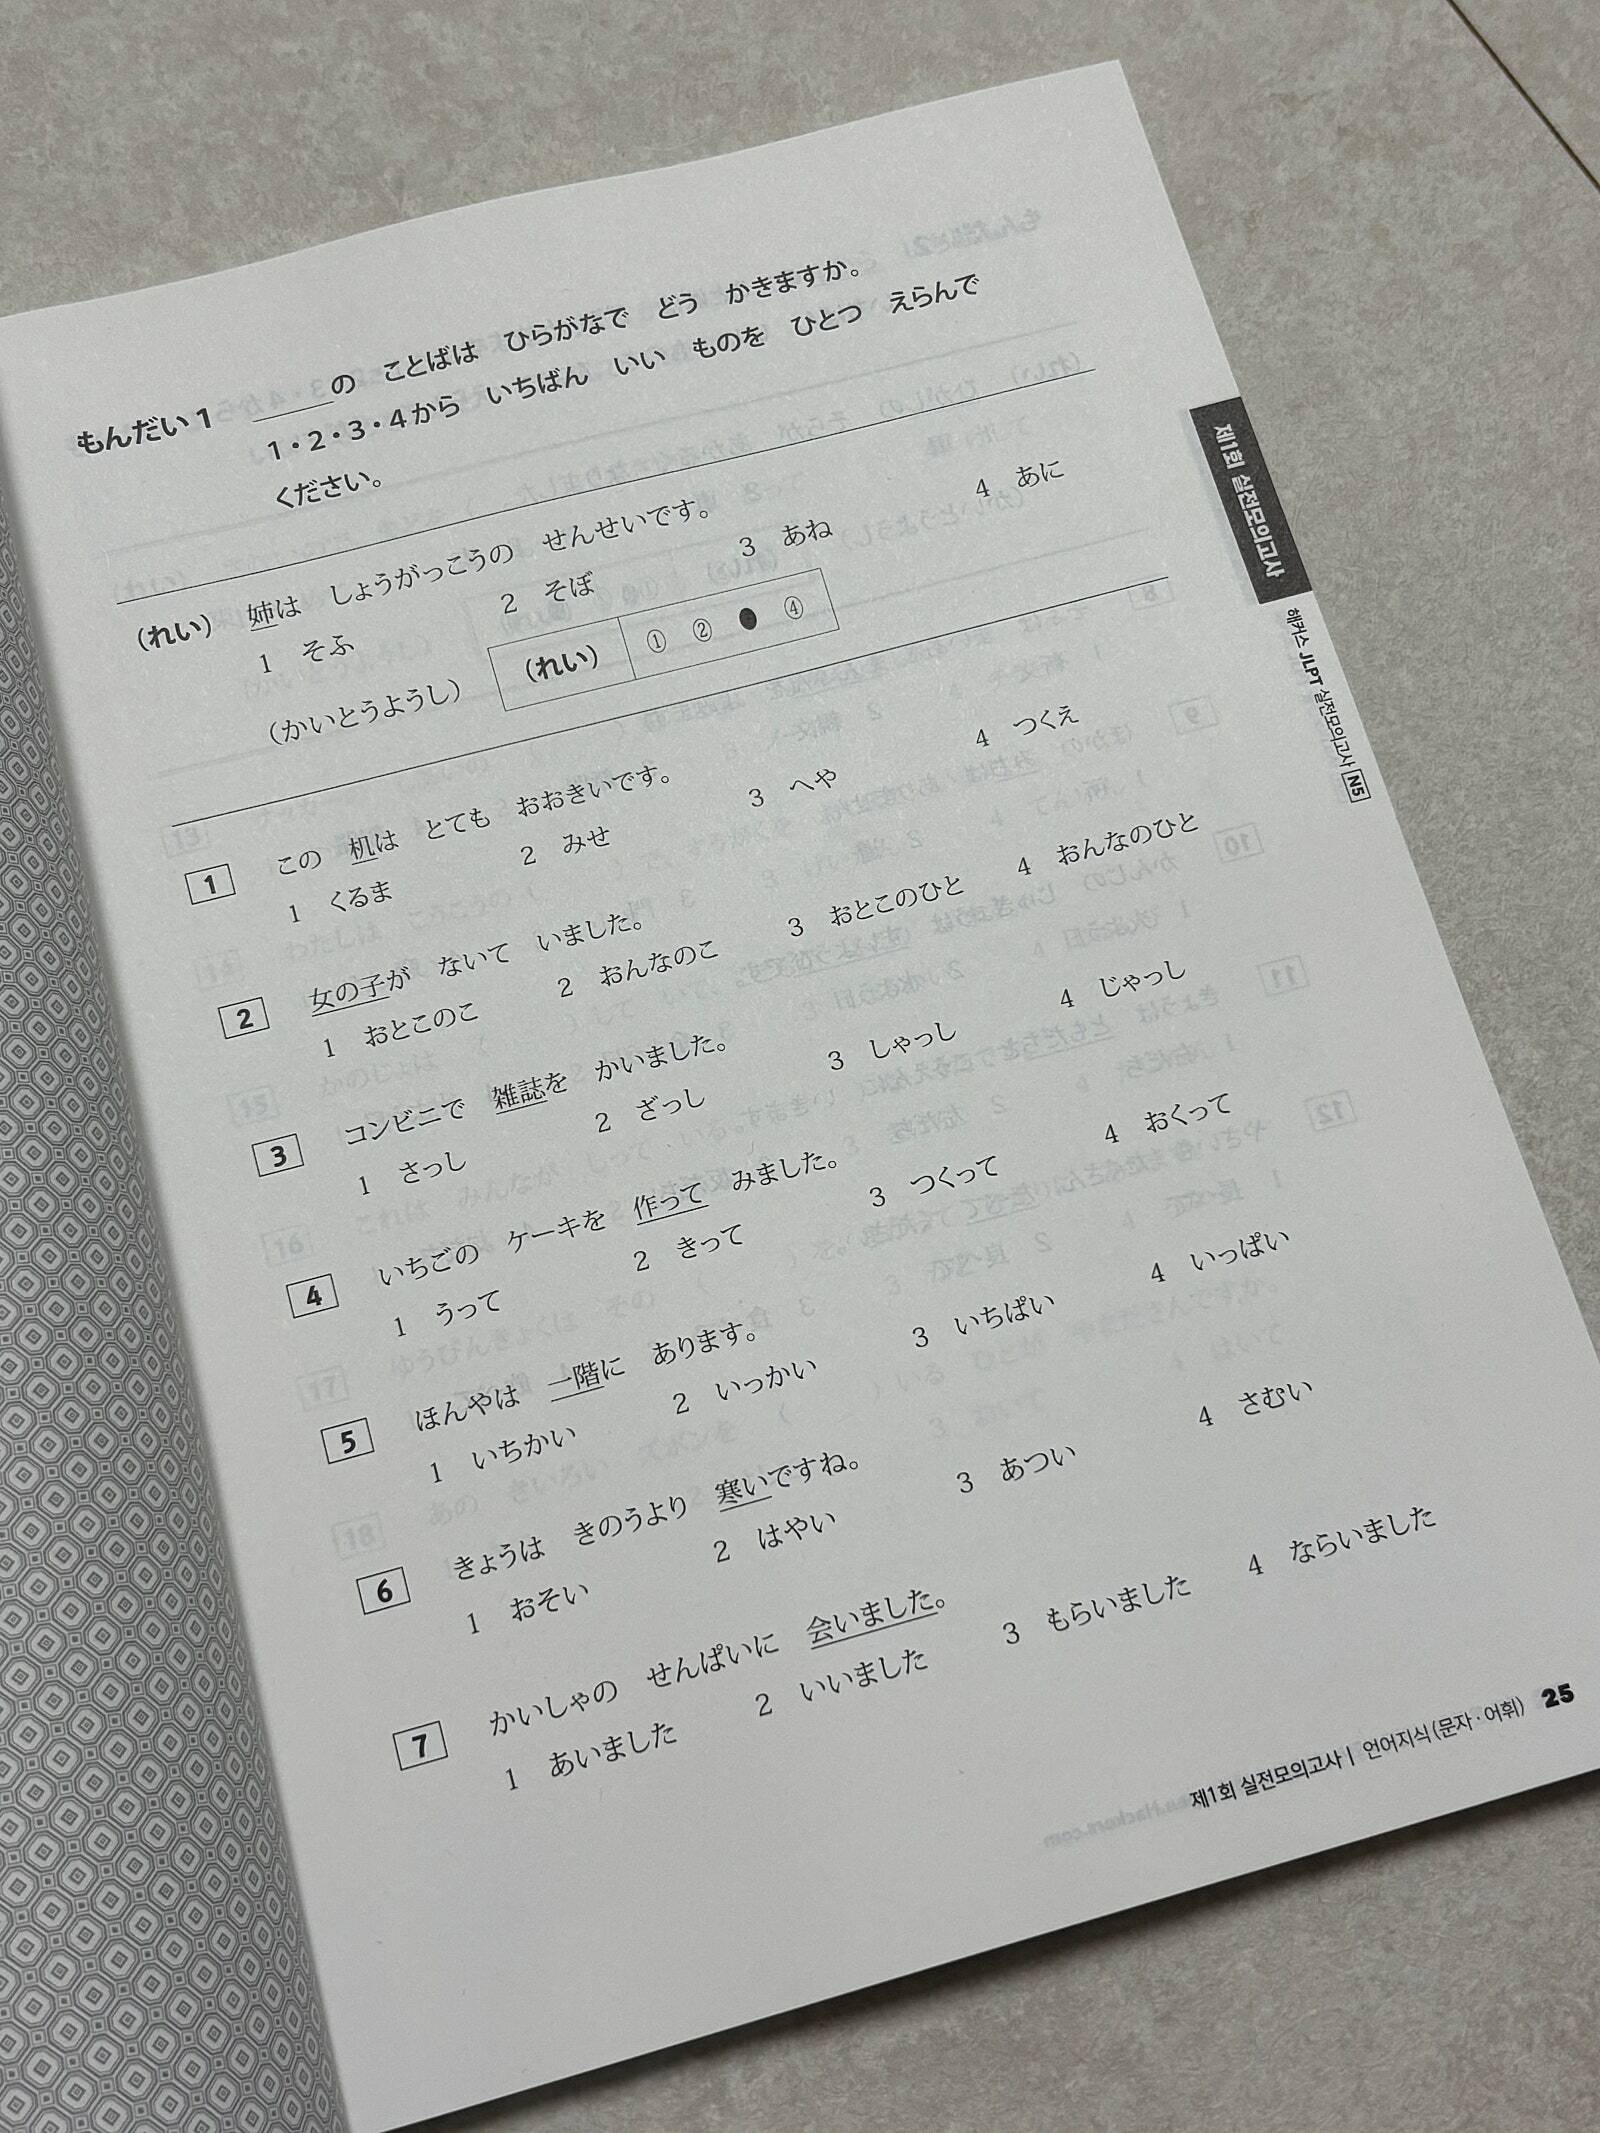 もんだい1 ＿＿＿の ことばは ひらがなで どう かきますか。
1・2・3・4から いちばん いい ものを ひとつ えらんで
ください。
(れい) 姉は しょうがっこうの せんせいです。
1 そふ 2 そぼ 3 あね 4 あに
(かいとうようし) (れい) ① ② ● ④
1 この 机は とても おおきいです。
1 くるま 2 みせ 3 へや 4 つくえ
2 女の子が ないて いました。
1 おとこのこ 2 おんなのこ 3 おとこのひと 4 おんなのひと
3 コンビニで 雑誌を かいました。
1 さっし 2 ざっし 3 しゃっし 4 じゃっし
4 いちごの ケーキを 作って みました。
1 うって 2 きって 3 つくって 4 おくって
5 ほんやは 一階に あります。
1 いちかい 2 いっかい 3 いちぱい 4 いっぱい
6 きょうは きのうより 寒いですね。
1 おそい 2 はやい 3 あつい 4 さむい
7 かいしゃの せんぱいに 会いました。
1 あいました 2 いいました 3 もらいました 4 ならいました
제1회 실전모의고사
해커스 JLPT 실전모의고사 N5
제1회 실전모의고사 | 언어지식 (문자·어휘) 25